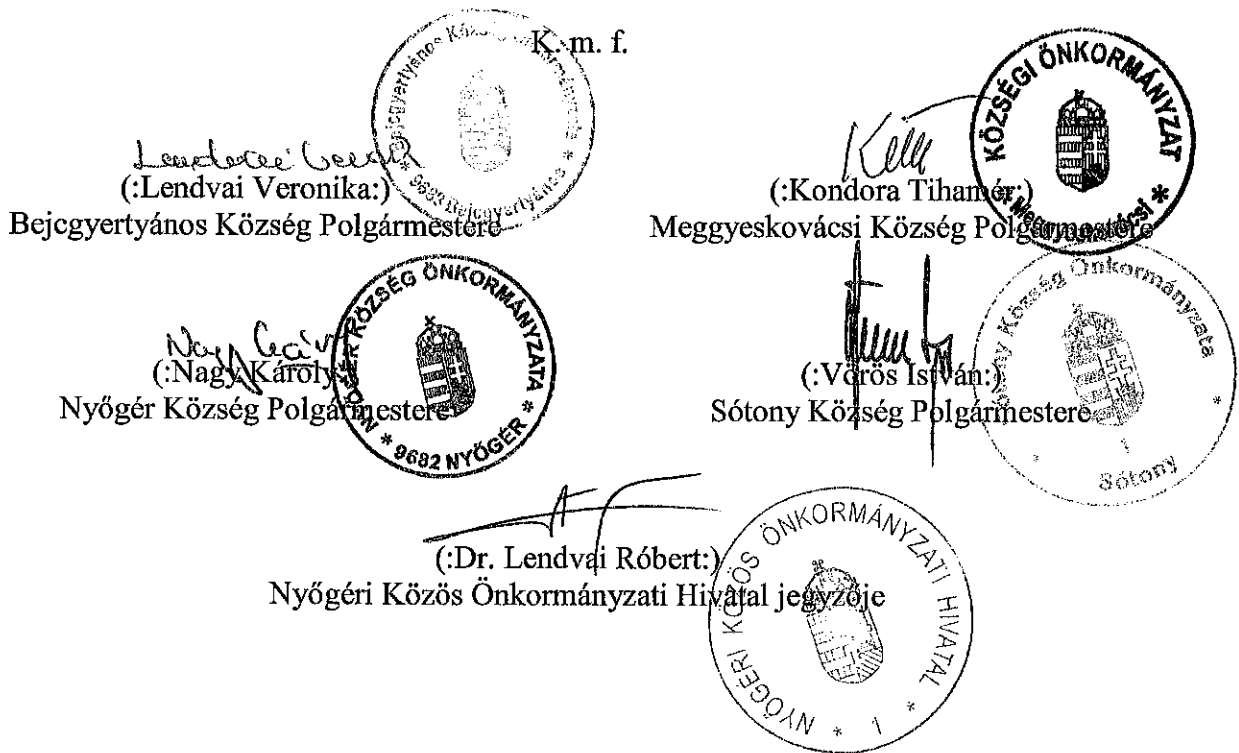 K. m. f.
(:Lendvai Veronika:)
Bejcgyertyános Község Polgármestere
Bejcgyertyános Község Önkormányzata * 9683 Bejcgyertyános *
(:Kondora Tihamér:)
Meggyeskovácsi Község Polgármestere
KÖZSÉGI ÖNKORMÁNYZAT * Meggyeskovácsi *
(:Nagy Károly:)
Nyőgér Község Polgármestere
NYŐGÉR KÖZSÉG ÖNKORMÁNYZATA * 9682 NYŐGÉR *
(:Vörös István:)
Sótony Község Polgármestere
Sótony Község Önkormányzata * 1 * Sótony
(:Dr. Lendvai Róbert:)
Nyőgéri Közös Önkormányzati Hivatal jegyzője
NYŐGÉRI KÖZÖS ÖNKORMÁNYZATI HIVATAL * 1 *